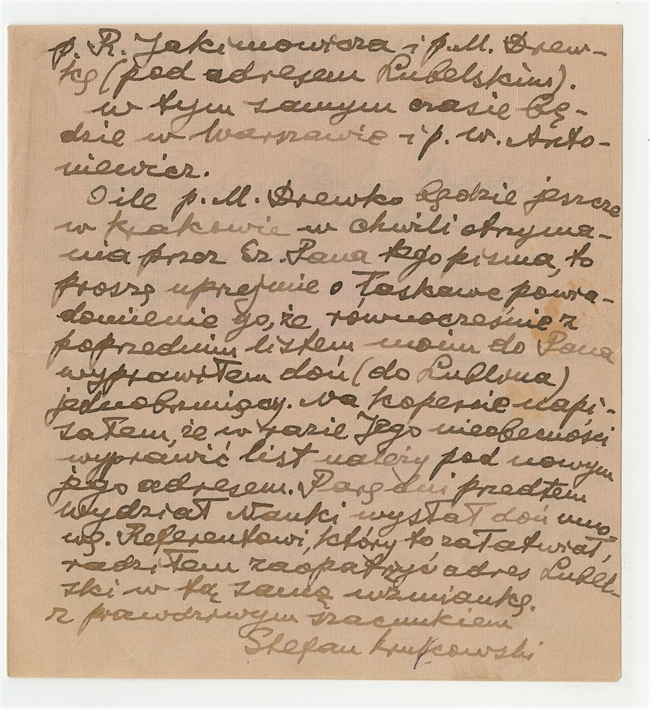 p. R. Jakimowicza i p. M. Drew-
kę (pod adresem Lubelskim).
w tym samym czasie bę-
dzie w Warszawie i p. W. Anto-
niewicz.
O ile p. M. Drewko będzie jeszcze
w Krakowie w chwili otrzyma-
nia przez Sz. Pana tego pisma, to
proszę uprzejmie o łaskawe powia-
domienie go, że równocześnie z
poprzednim listem moim do Pana
wyprawiłem doń (do Lublina)
jednobrzmiący. Na kopercie napi-
sałem, że w razie Jego nieobecności
wyprawić list należy pod nowym
jego adresem. Parę dni przedtem
Wydział Nauki wysłał doń umo
wę. Referentowi, który to załatwiał,
radziłem zaopatrzyć adres Lubel-
ski w tę samą wzmiankę.
z prawdziwym szacunkiem
Stefan Krukowski